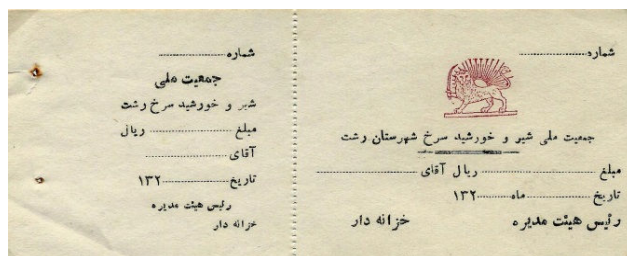 شماره
جمعیت ملی شیر و خورشید سرخ شهرستان رشت
مبلغ ریال آقای
تاریخ ماه ۱۳۲
رئیس هیئت مدیره خزانه دار
شماره
جمعیت ملی
شیر و خورشید سرخ رشت
مبلغ ریال
آقای
تاریخ ۱۳۲
رئیس هیئت مدیره
خزانه دار